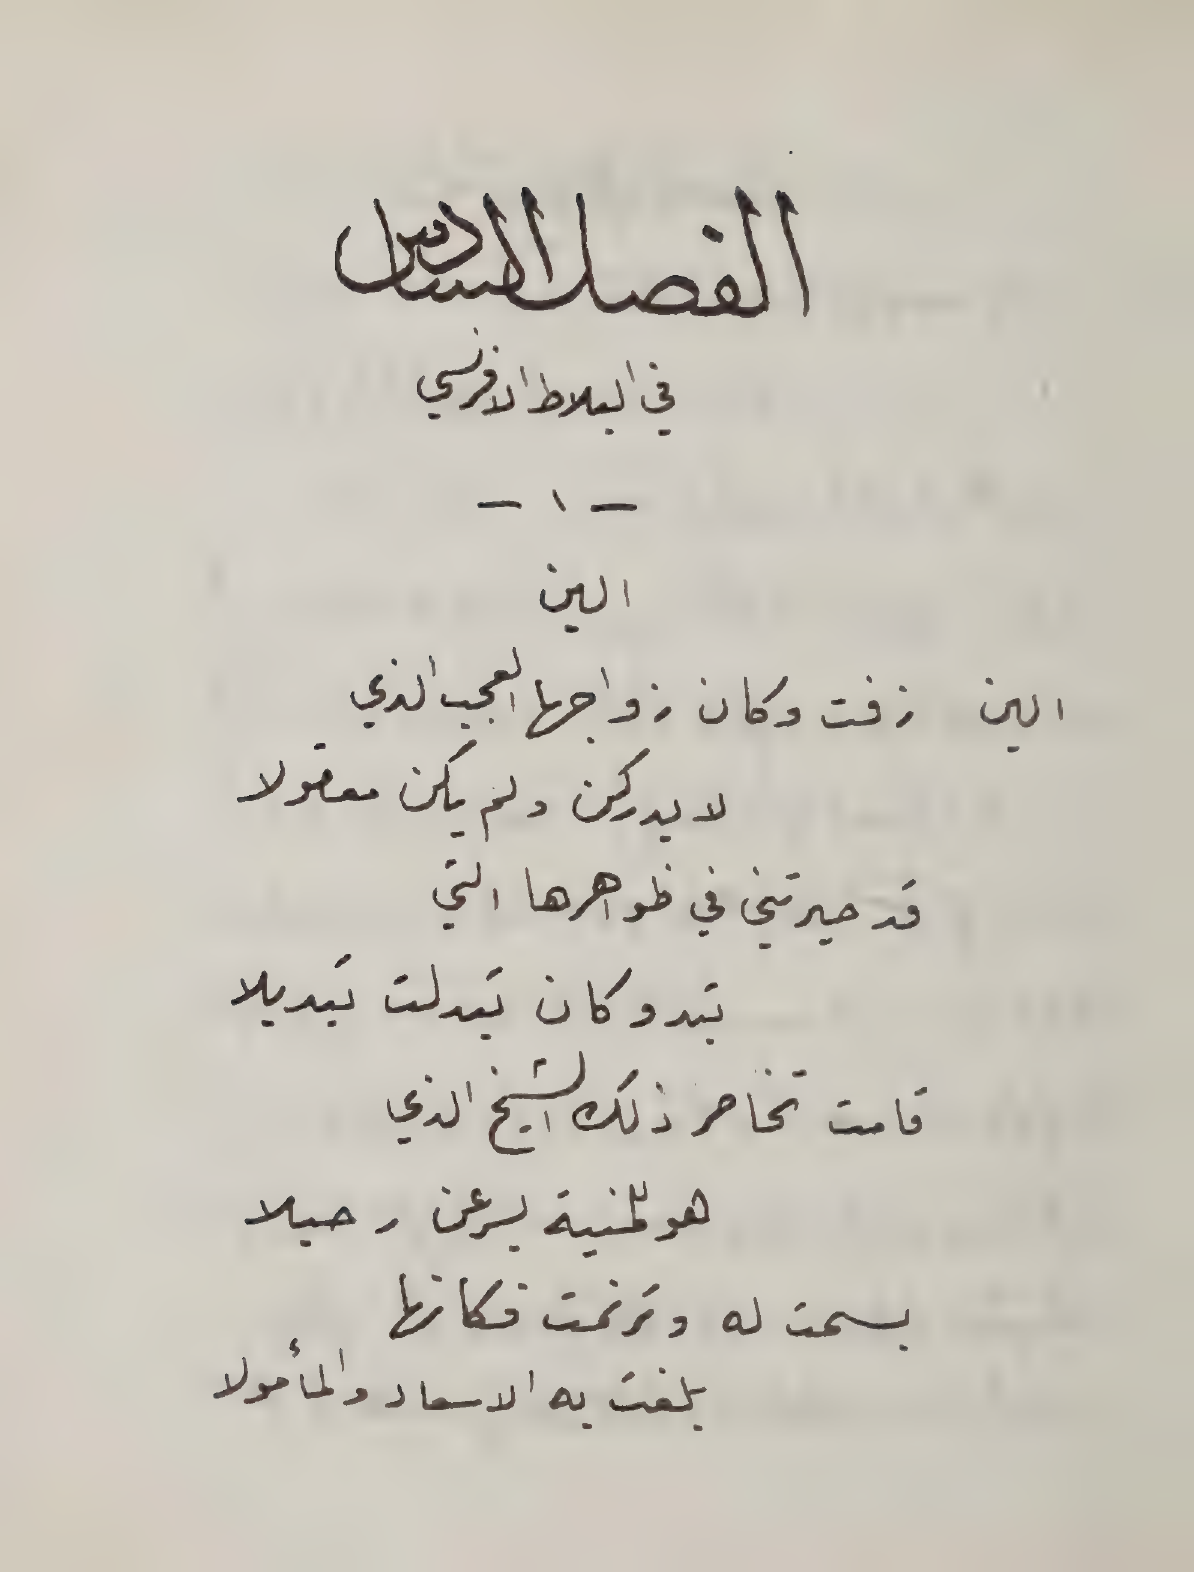 الفصل السادس
في البلاط الافرنسي
— ١ —
الين
الين زفت وكان زواجها العجيب الذي
لا يدركن ولم يكن معقولا
قد حيرتني في ظواهرها التي
تبدو كان تبدلت تبديلا
قامت تخاصر ذلك الشيخ الذي
هو للمنية يسرعن رحيلا
بسمت له وترنمت فكانها
بلغت به الاسعاد والمأمولا